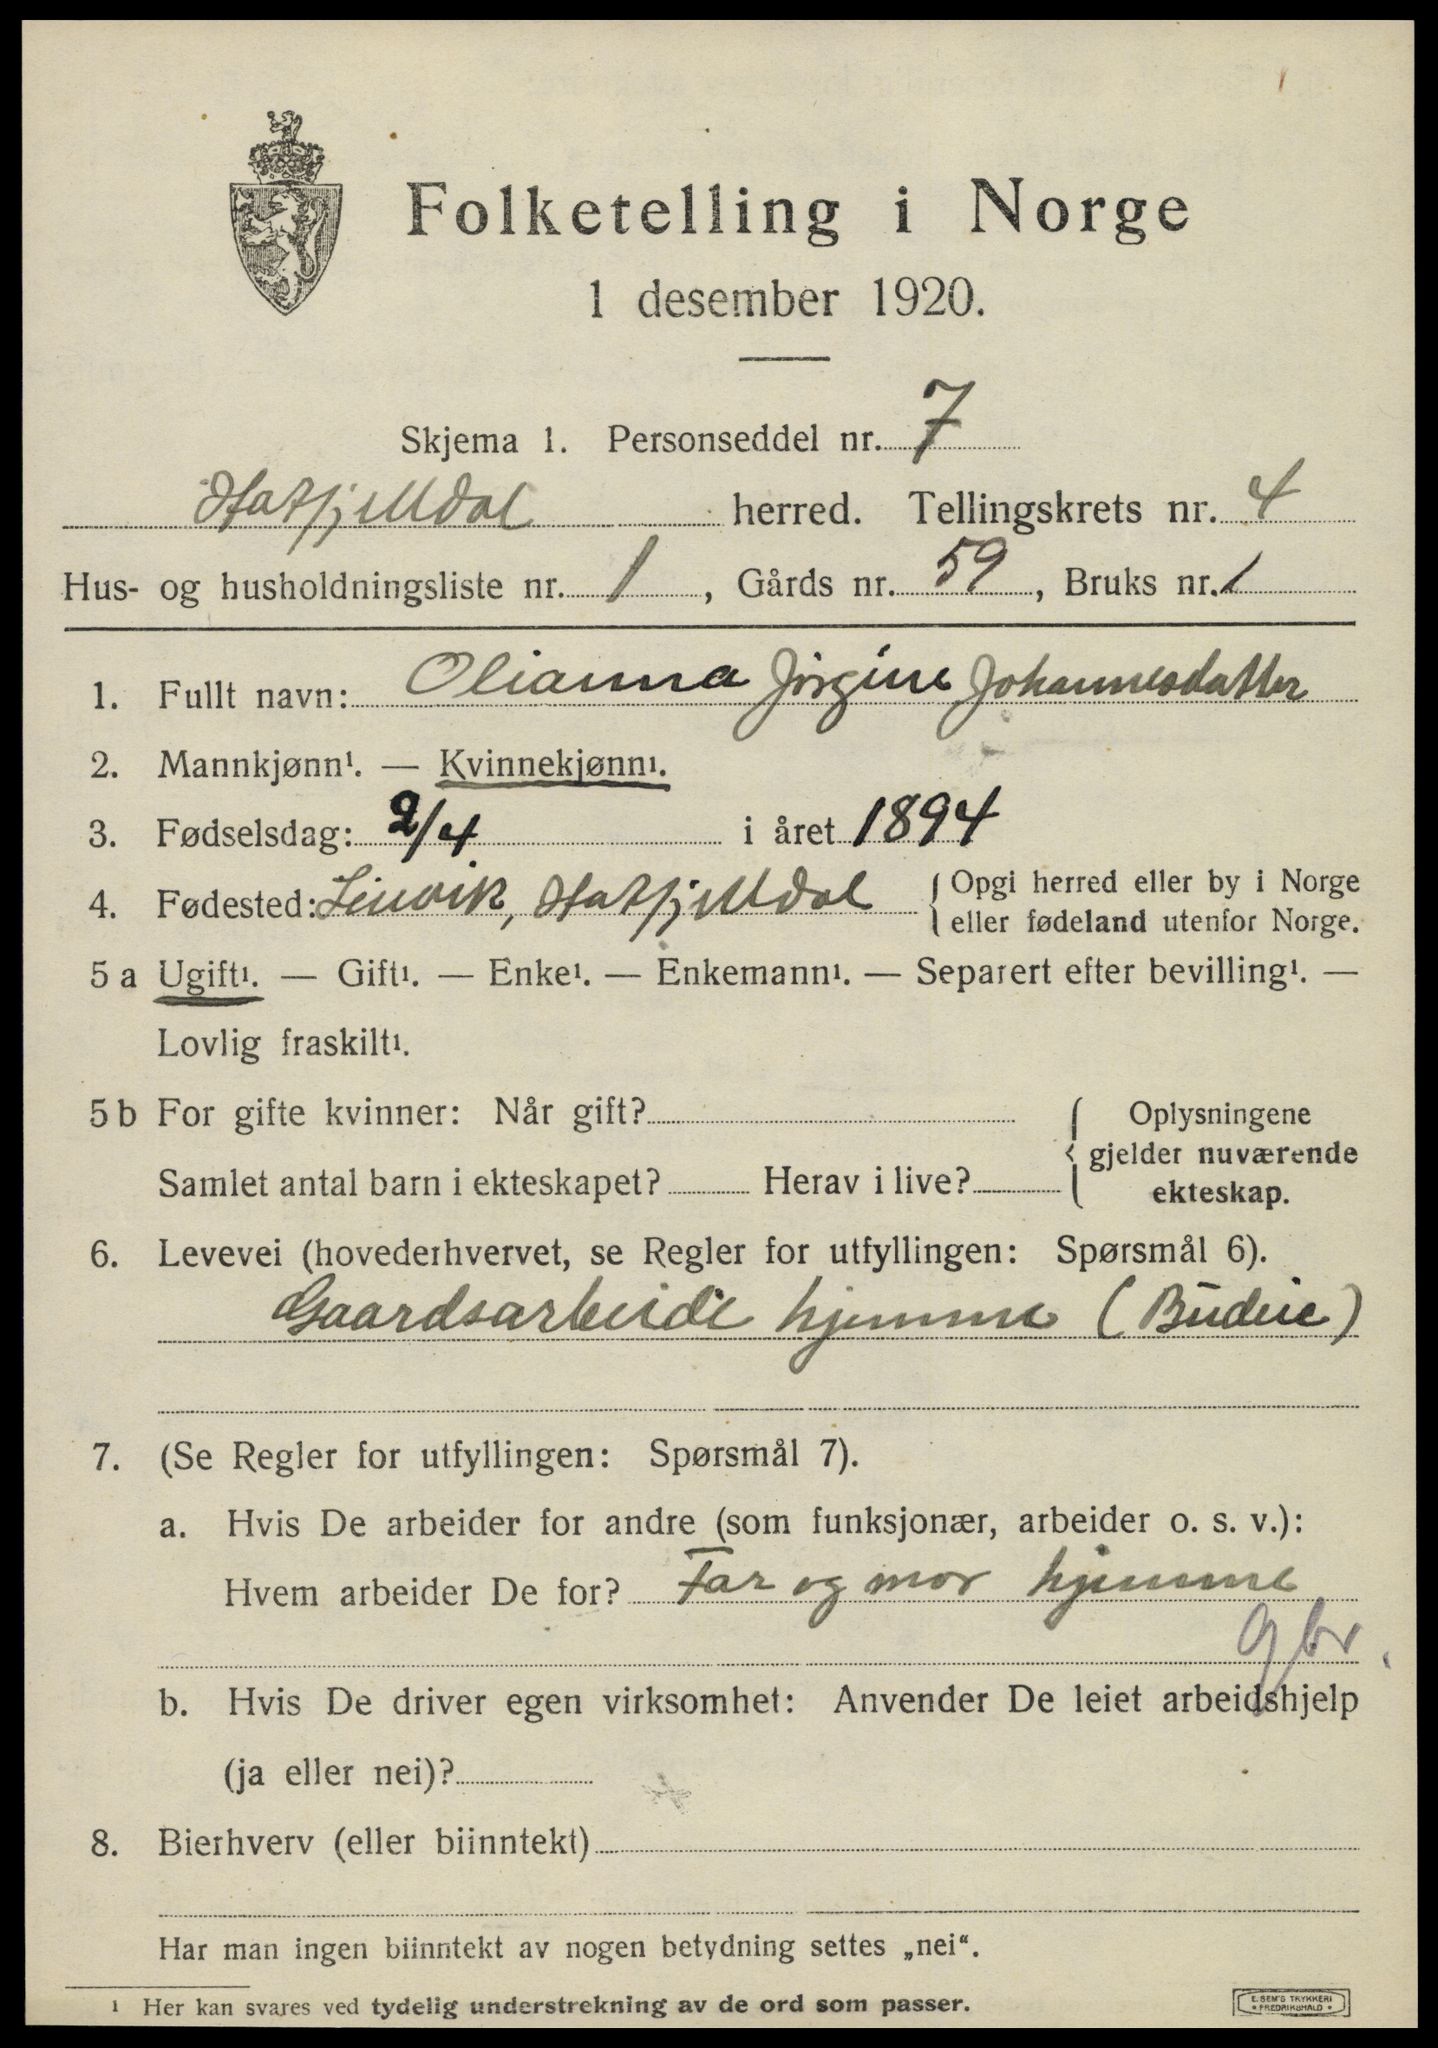 Folketelling i Norge
1 desember 1920.
Skjema 1. Personseddel nr. 7
Hatfjelldal herred. Tellingskrets nr. 4
Hus- og husholdningsliste nr. 1, Gårds nr. 59, Bruks nr. 1
1. Fullt navn: Olianna Jörgine Johannesdatter
2. Mannkjønn¹. — Kvinnekjønn¹.
3. Fødselsdag: 2/4 i året 1894
4. Fødested: Hatfjelldal { Opgi herred eller by i Norge
eller fødeland utenfor Norge.
5 a Ugift¹. — Gift¹. — Enke¹. — Enkemann¹. — Separert efter bevilling¹. —
Lovlig fraskilt¹.
5 b For gifte kvinner: Når gift? { Oplysningene
gjelder nuværende
Samlet antal barn i ekteskapet? Herav i live? ekteskap.
6. Levevei (hovederhvervet, se Regler for utfyllingen: Spørsmål 6).
Gaardsarbeide hjemme (Budeie)
7. (Se Regler for utfyllingen: Spørsmål 7).
a. Hvis De arbeider for andre (som funksjonær, arbeider o. s. v.):
Hvem arbeider De for? Far og mor hjemme
gbr.
b. Hvis De driver egen virksomhet: Anvender De leiet arbeidshjelp
(ja eller nei)?
8. Bierhverv (eller biinntekt)
Har man ingen biinntekt av nogen betydning settes „nei“.
¹ Her kan svares ved tydelig understrekning av de ord som passer.
E. SEM'S TRYKKERI
* FREDRIKSHALD *